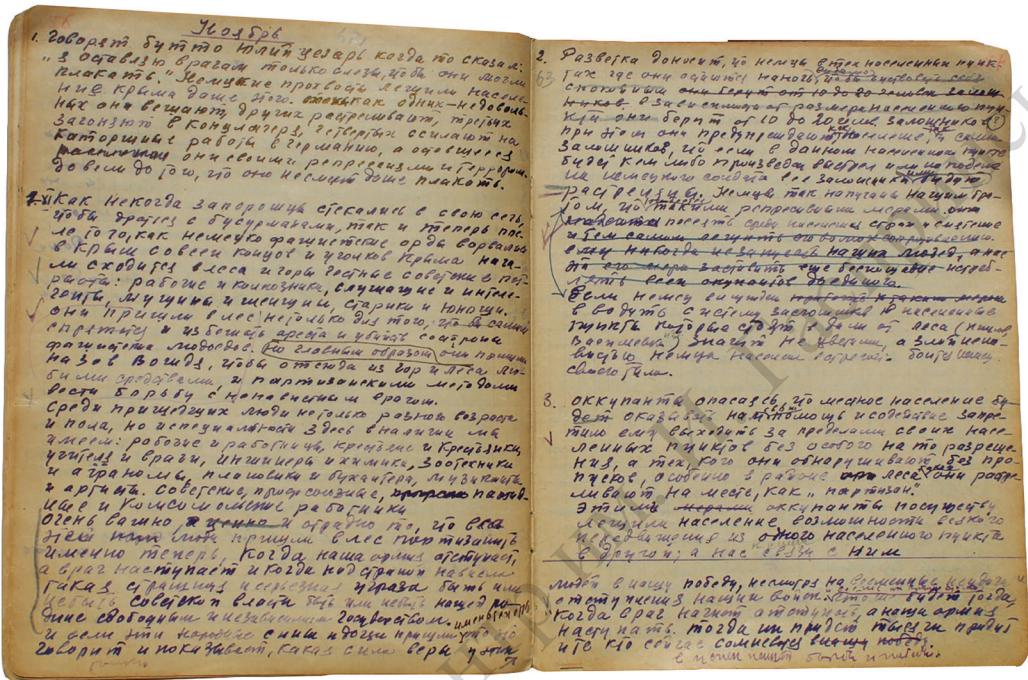 Ноябрь
1. Говорят бутто Юлий цезарь когда то сказал:
"я оставляю врагам только слезы, что бы они могли
плакать." Немецкие прохвосты лещили населе-
ние крыма даже этого. как одних-недоволь-
ных они вешают, других растреливают, третьих
загоняют в концлагеря, четвертых ссылают на
каторжные работы в германию, а
они своими репрессиями и террором
довели до того, что оно несмеет даже плакать.
Как некогда запорожцы стекались в свою сечь,
чтобы драться с бусурманами, так и теперь пос-
ле того, как немецко фашистские орды ворвались
в Крым со всех концов и уголков Крыма нача-
ли сходится в леса и горы честные советские пат-
риоты: рабочие и колхозники, служащие и интели-
генты, мущины и женщины, старики и юноши.
они пришли в лес не только для того, что бы самим
спрятатся и избегнуть ареста и убийств со стороны
фашистких людоедов. Но главным образом они пришли
чтобы отсюда из гор и леса лю-
быми средствами, и партизанскими методами
вести борьбу с ненавистным врагом.
Среди пришедших люди нетолько разного возраста
и пола, но и специальности здесь в наличии мы
имеем: рабочие и работницы, крестьяне и крестьянки,
учителя и врачи, инжинеры и химики, зоотехники
и аграномы, плановики и бухгалтера, музыканты
и артисты. Советские, профсоюзные, партий-
ные и комсомольские работники
Очень важно и отрадно то, что вся
люди пришли в лес партизанить
именно теперь, когда наша армия отступает,
а враг наступает и когда над страной нависла
такая страшная и серьезная угроза быть или
небыть советской власти быть или небыть нашей ро-
дине свободным и независимым государством.
и если эти народные сыны и дочери пришли то это
говорит и показывает, какая сила веры у этих
2. Разветка доносит, что немцы в тех населенных пунк-
тах где они
спокойными они берут от 10 до 20 человек залож-
ников в зависимости от размера населенного пун-
кта они берут от 10 до 20 челов. заложников(?)
при этом они предупреждают население, и самих
заложников, что если в данном населенном пункте
будет кем либо произведен выстрел или
на немецкого солдата все заложники будут
растреляны. Немцы так напуганы нашим бы-
том, что такими репресивными мерами они
посеять среди населения страх и смятение
и тем самым лещить его воли к сопротивлению.
ему никогда не запугать наших людей, а нас
эта его мера заставить еще беспощаднее истреб-
лять всех окупантов
Если немец вынужден
вводить систему заложников в населенные
пункты которые стоят далеко от леса
значит не цветами, а с нена-
вистью немца население встречает. боится немец
своего тыла.
3. Оккупанты опасаясь, что местное население бу-
дет оказывать нам помощь и содействие запре-
тили ему выходить за пределы своих насе-
ленных пунктов без особого на то разреше-
ния, а тех, кого они обнаруживают без про-
пусков, особенно в районе леса они растре-
ливают на месте, как "партизан".
Этими мерами оккупанты посуществу
лещили население, возможности всякого
передвижения из одного населенного пункта
в другой; а нас связи с ним
людей в нашу победу, несмотря на временные неудачи
отступления наших войск. будет тогда,
когда враг начнет отступать, а наша армия
наступать. тогда к ним придет тысячи придут
и те кто сейчас сомневается в нашу победу.